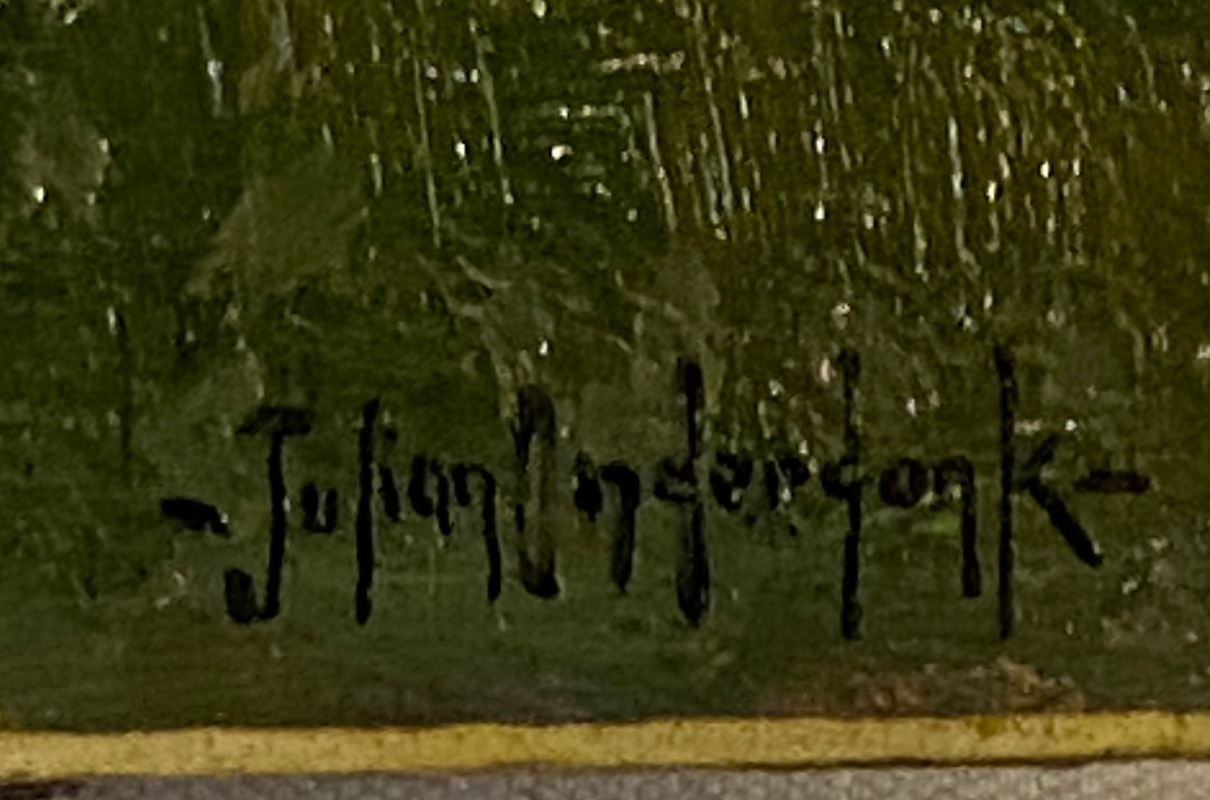 -Julian Onderdonk-